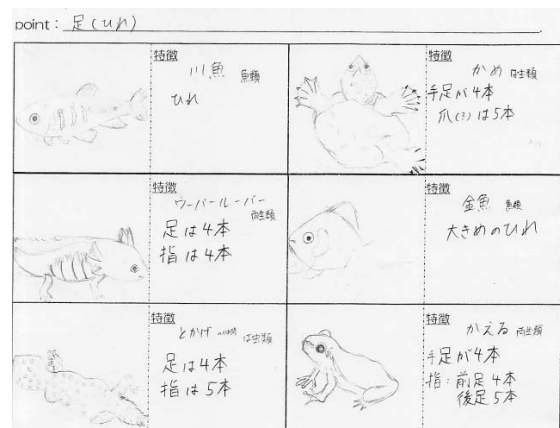 point: 足(ひれ)
特徴
川魚 魚類
ひれ
特徴
かめ は虫類
手足が4本
爪(?)は5本
特徴
ウーパールーパー
両生類
足は4本
指は4本
特徴
金魚 魚類
大きめのひれ
特徴
とかげ は虫類
足は4本
指は5本
特徴
かえる 両生類
手足が4本
指:前足4本
後足5本